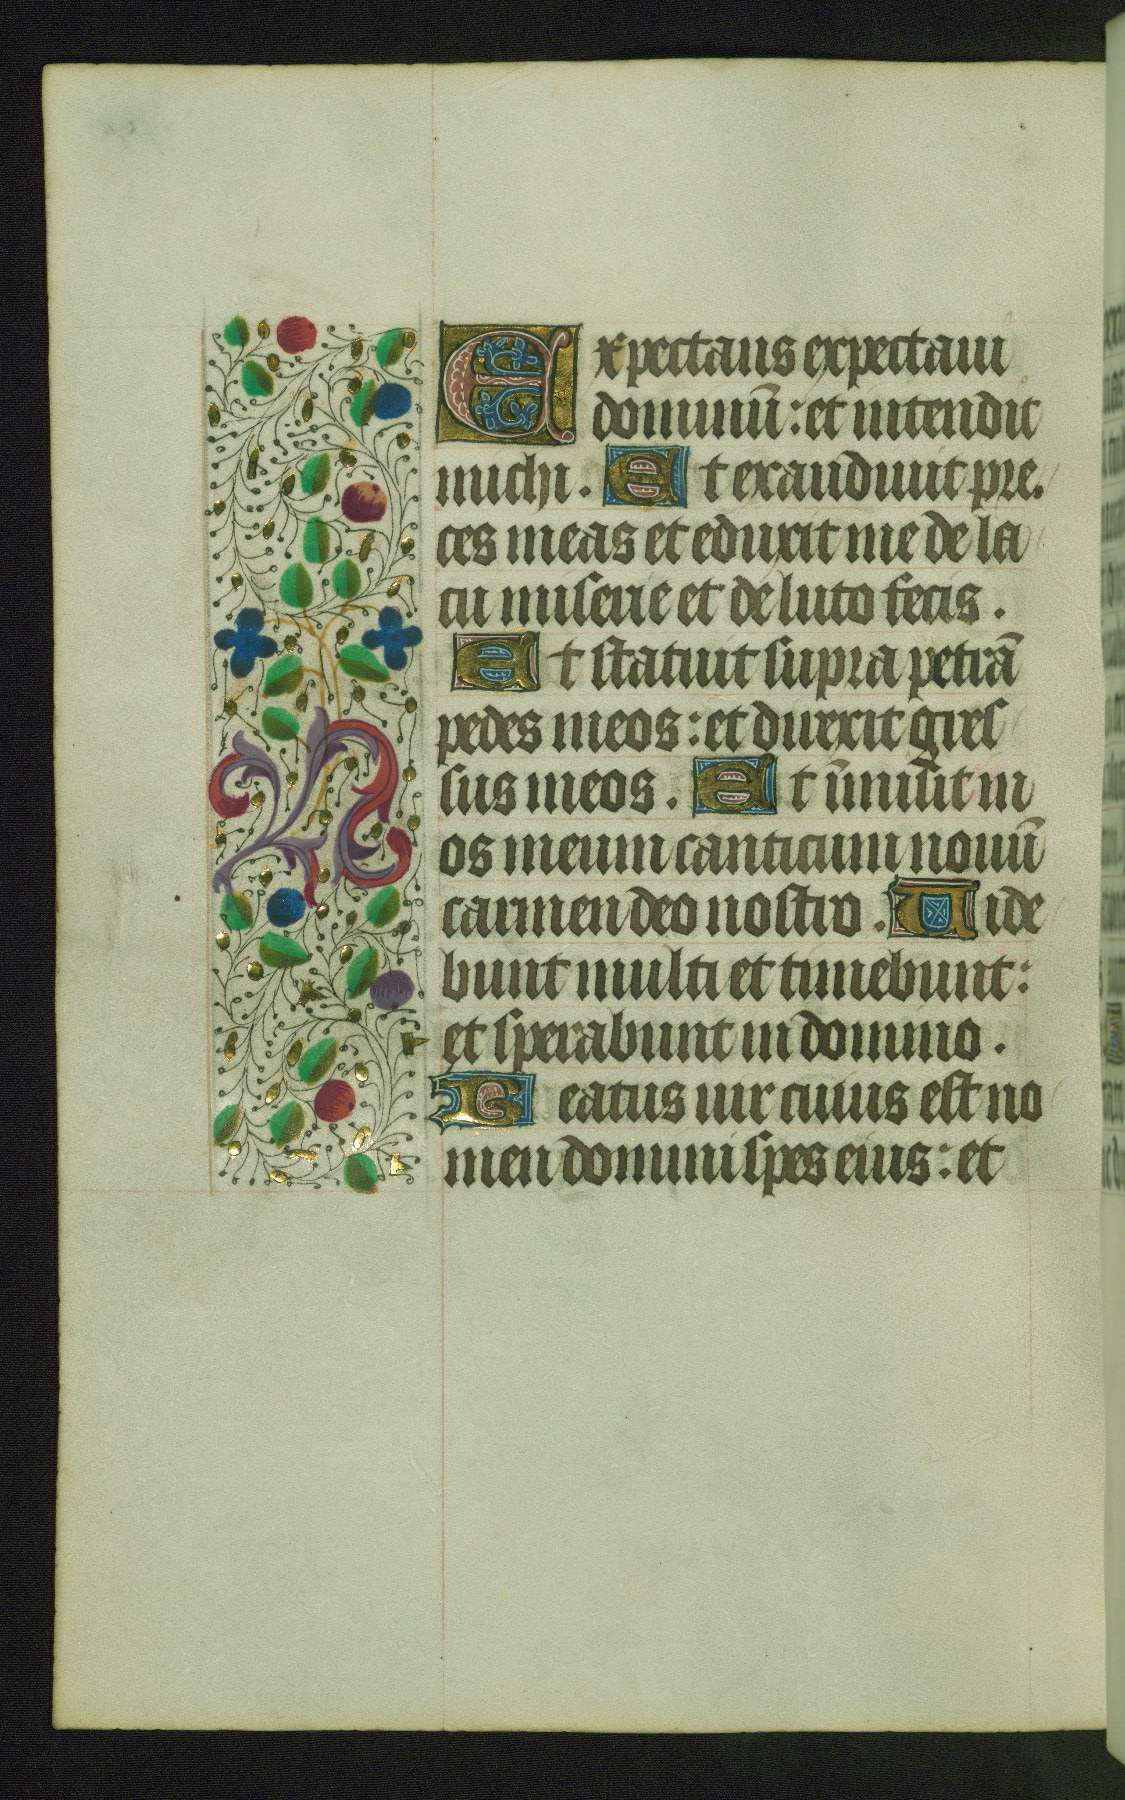 Expectans expectaui
dominū : et intendit
michi . Et exaudiuit pre.
ces meas et eduxit me de la
cu miserie et de luto fecis .
Et statuit supra petrā
pedes meos : et direxit gres
sus meos . Et īmisit in
os meum canticum nouū
carmen deo nostro . Uide
bunt multi et timebunt :
et sperabunt in domino .
Beatus uir cuius est no
men domini spes eius : et